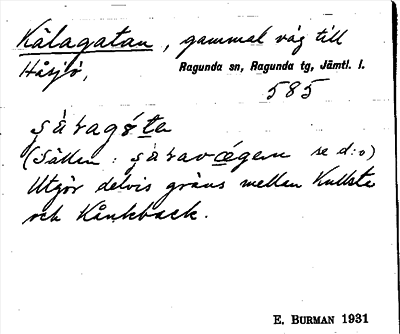 Kälagatan, gammal väg till
Håsjö, Ragunda sn, Ragunda tg, Jämtl. l.
585
(Sällan: se d:o)
Utgör delvis gräns mellan Kullsta
och Kånkback.
E. BURMAN 1931